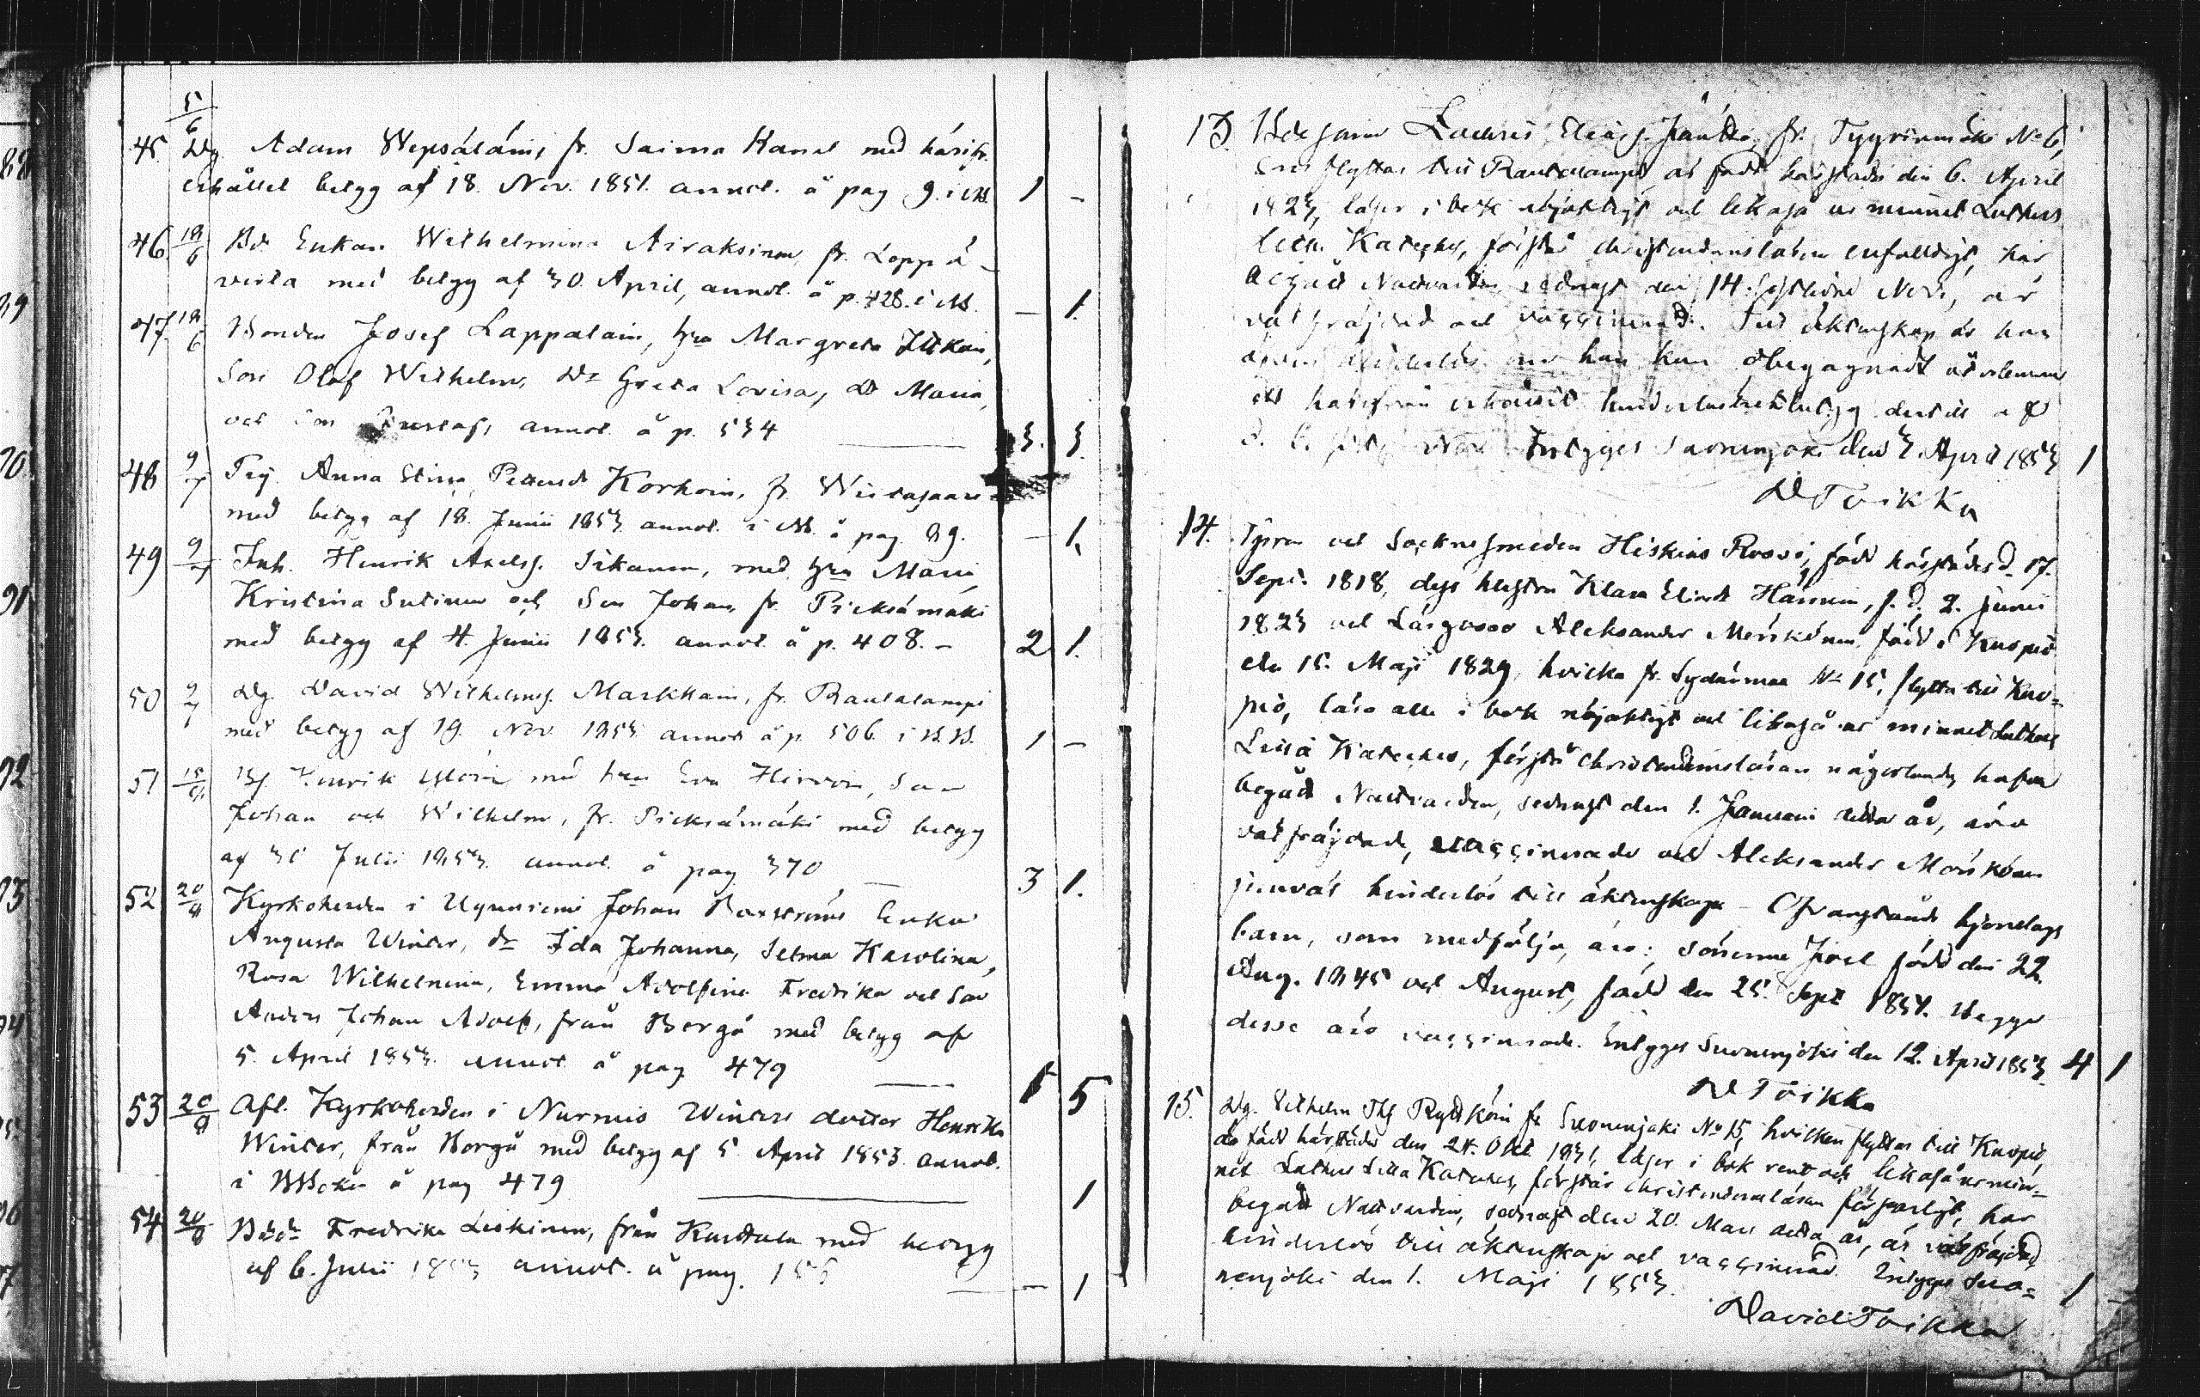 5/6
45 Dg. Adam Wepsäläin, fr. Saima Kanal med härifr.
erhållet betyg af 18. Nov. 1851. annot. å pag 9. i 1 –
46 18/6 Enkan Wilhelmina Airaksinen, fr. Loppä-
virta med betyg af 30 April, annot. å p. 428. i – 1.
47. 18/6 Bonden Josef Lappalain, hu Margreta
Son Olof Wilhelm, Dr Greta Lovisa, Dr Maria,
och Son Gustaf, annot. å p. 534 3. 3.
48 9/7 Pig. Anna Stina Pettersdr Korhoin, fr. Wiitasaari
med betyg af 18. Junii 1853 annot. i å pag. 89. – 1.
49 9/7 Inh. Henrik Axelss. Sikanen, med hu Maria
Kristina Sutinen och Son Johan, fr. Pieksämäki
med betyg af 4. Junii 1853. annot. å p. 408. – 2 1.
50 9/7 Dg. David Wilhelmss. Markkain, fr. Rautalampi
med betyg af 19. Nov. 1853 annot å p. 506 i 1 –
51 Henrik med hu Eva Hirvoin, Son
Johan och Wilhelm, fr. Pieksämäki med betyg
af Julii 1853. annot. å pag. 370 3 1.
52 20/8 Kyrkoherden i Uguniemi Johan enka
Augusta Winter, dr Ida Johanna, Selma Karolina,
Rosa Wilhelmina, Emma Adolfina Fredrika och Son
Anders Johan Adolf, från Borgå med betyg af
5. April 1853. annot å pag 479 1 5
53 20/8 Afl. Kyrkoherden i Nurmis Winters dotter Henrika
Winter, från Borgå med betyg af 5 April 1853. annot.
i å pag 479 1
54 20/8 Fredrika Leskinen, från Karttula med betyg
af 6. Julii 1853 annot. å pag. 155 – 1
13. Elias. Jäntti, fr. Tyyrinmäki No 6,
som flyttar till Rautalampi är född härstädes den 6. April
1823, läser i bok nöjaktigt och likaså ur minnet Luthers
lilla Kateches, förstår christendomsläran enfaldigt, har
begått Nattvarden sednast den 14. sistledne Nov., är
välfräjdad och vaccinerad. Till äktenskap är han
äfven hinderlös om han kan obegagnadt återlemna
ett härifrån erhållit hinderlöshetsbetyg dertill af
d. 6. Nov. Intygas Suonenjoki den 3. April 1853 1
D Toikka
14. och Sockne smeden Hiskias Rossi, född härstädes d. 17.
Sept. 1818, dess hustru Klara Elisdr Hännin, f. d. 2. Junii
1823 och Lärgosse Aleksander Mörskönen född i Kuopio
den 15. Maji 1829, hvilka fr. Sydänmaa No 15, flytta till Kuo-
pio, läsa alla i bok nöjaktigt och likaså ur minnet Luthers
Lilla Kateches, förstå Christendomsläran någorlunda, hafva
begått Nattvarden, sednast den 1. Januari detta år, äro
välfräjdade, vaccinerade och Aleksander Mörskönen
jemväl hinderlös till äktenskap – Ofvanstånde hjonelags
barn, som medfölja, äro: sönerne Joel född den 22.
Aug. 1845 och August, född den 25. Sept 1851. Begge
desse äro vaccinerade. Intygas Suonenjoki den 12. April 1853. 4 1
D Toikka
15. Dg. Vilhelm Ryttköin fr. Suonenjoki No 15, hvilken flyttar till Kuopio,
är född härstädes den 24. Okt 1831, läser i bok rent och likaså ur min-
net Luthers Lilla Kateches, förstår christendomsläran försvarligt, har
begått Nattvarden, sednast den 20. Mars detta år, är välfräjdad,
hinderlös till äktenskap och vaccinerad. Intygas Suo-
nenjoki den 1. Maji 1853. 1 –
David Toikka